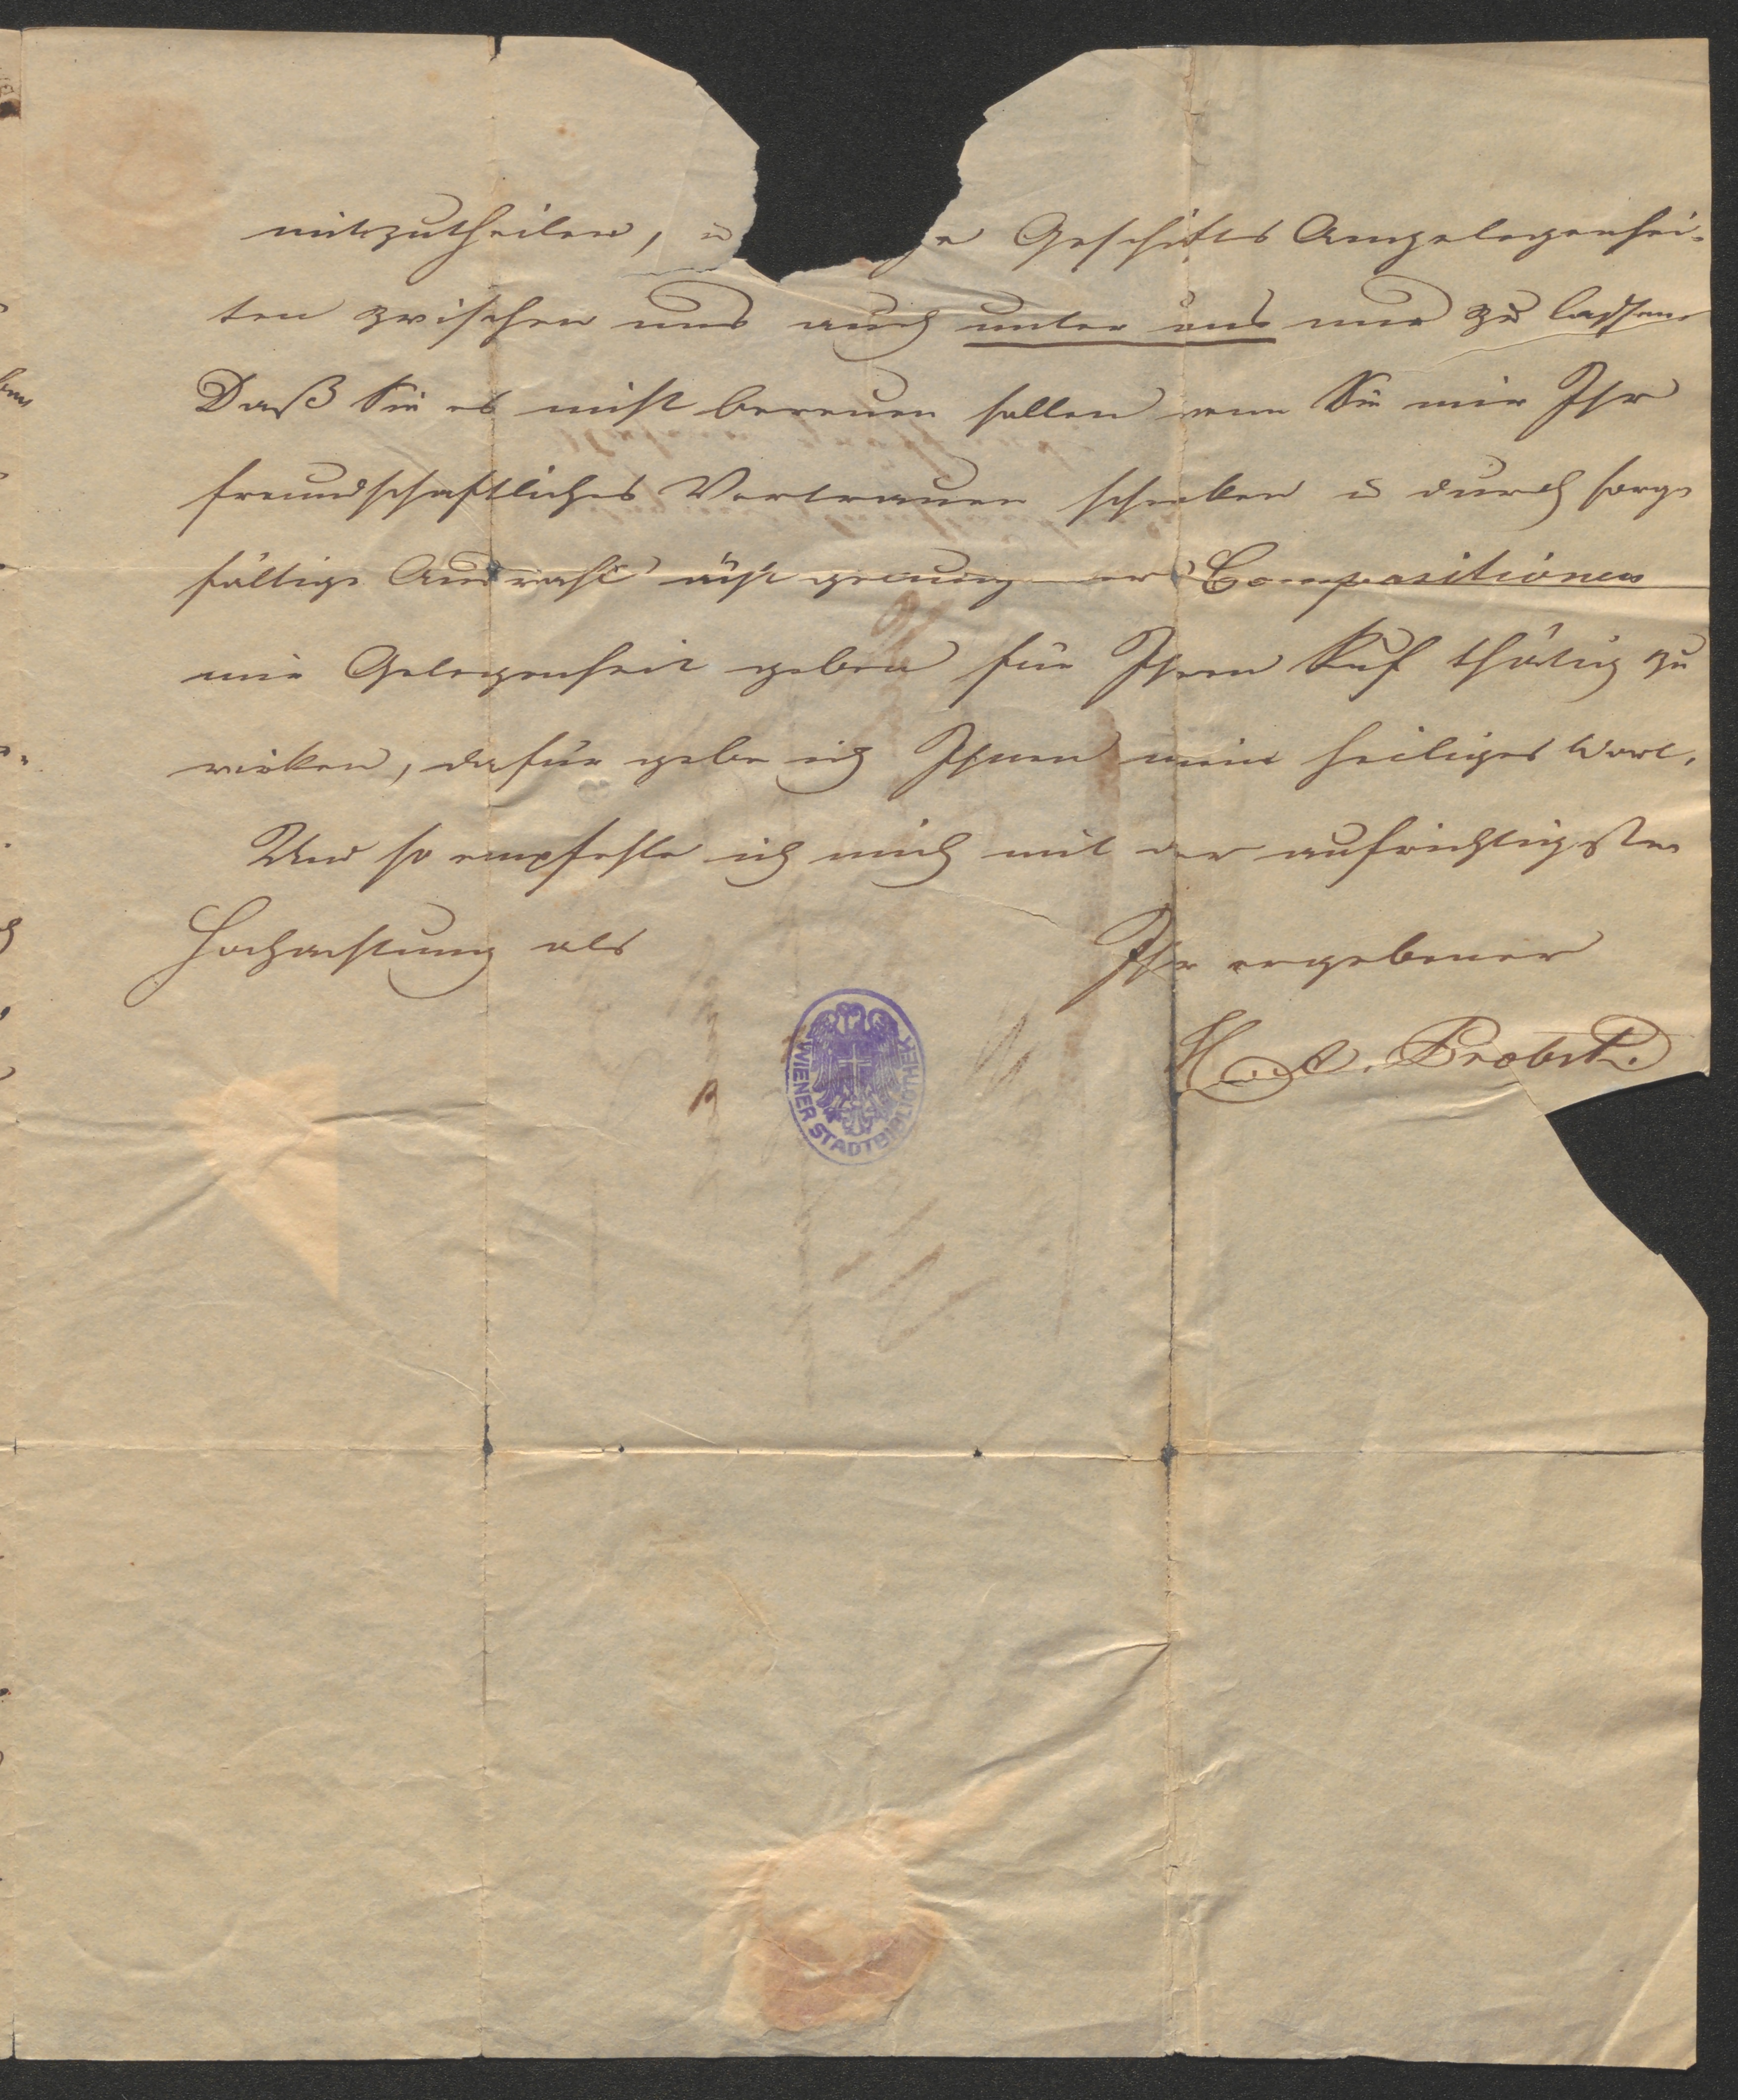 mitzutheilen, u ge Geschäfts Angelegenhei-
ten zwischen uns auch unter uns nur zu lassen
Daß Sie es nicht bereuen sollen wenn Sie mir Ihr
freundschaftliches Vertrauen schenken u durch sorg-
fältige Auswahl ächt gelungener Compositionen
mir Gelegenheit geben für Ihren Ruf thätig zu
wirken, dafür gebe ich Ihnen mein heiliges Wort.
Und so empfehle ich mich mit der aufrichtigsten
Hochachtung als
Ihr ergebener
H. A. Probst.
WIENER STADTBIBLIOTHEK